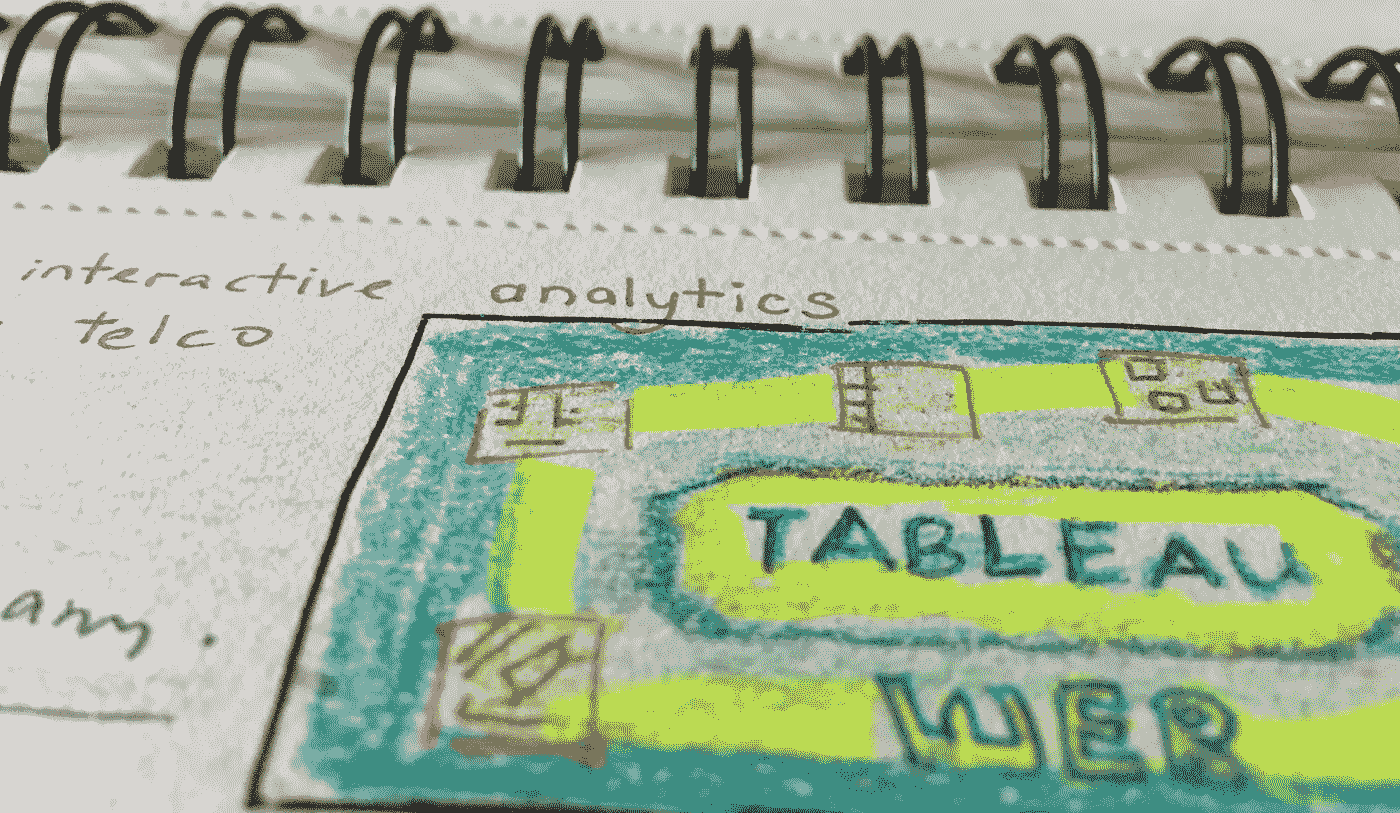 interactive analytics
telco
TABLEAU
WEB